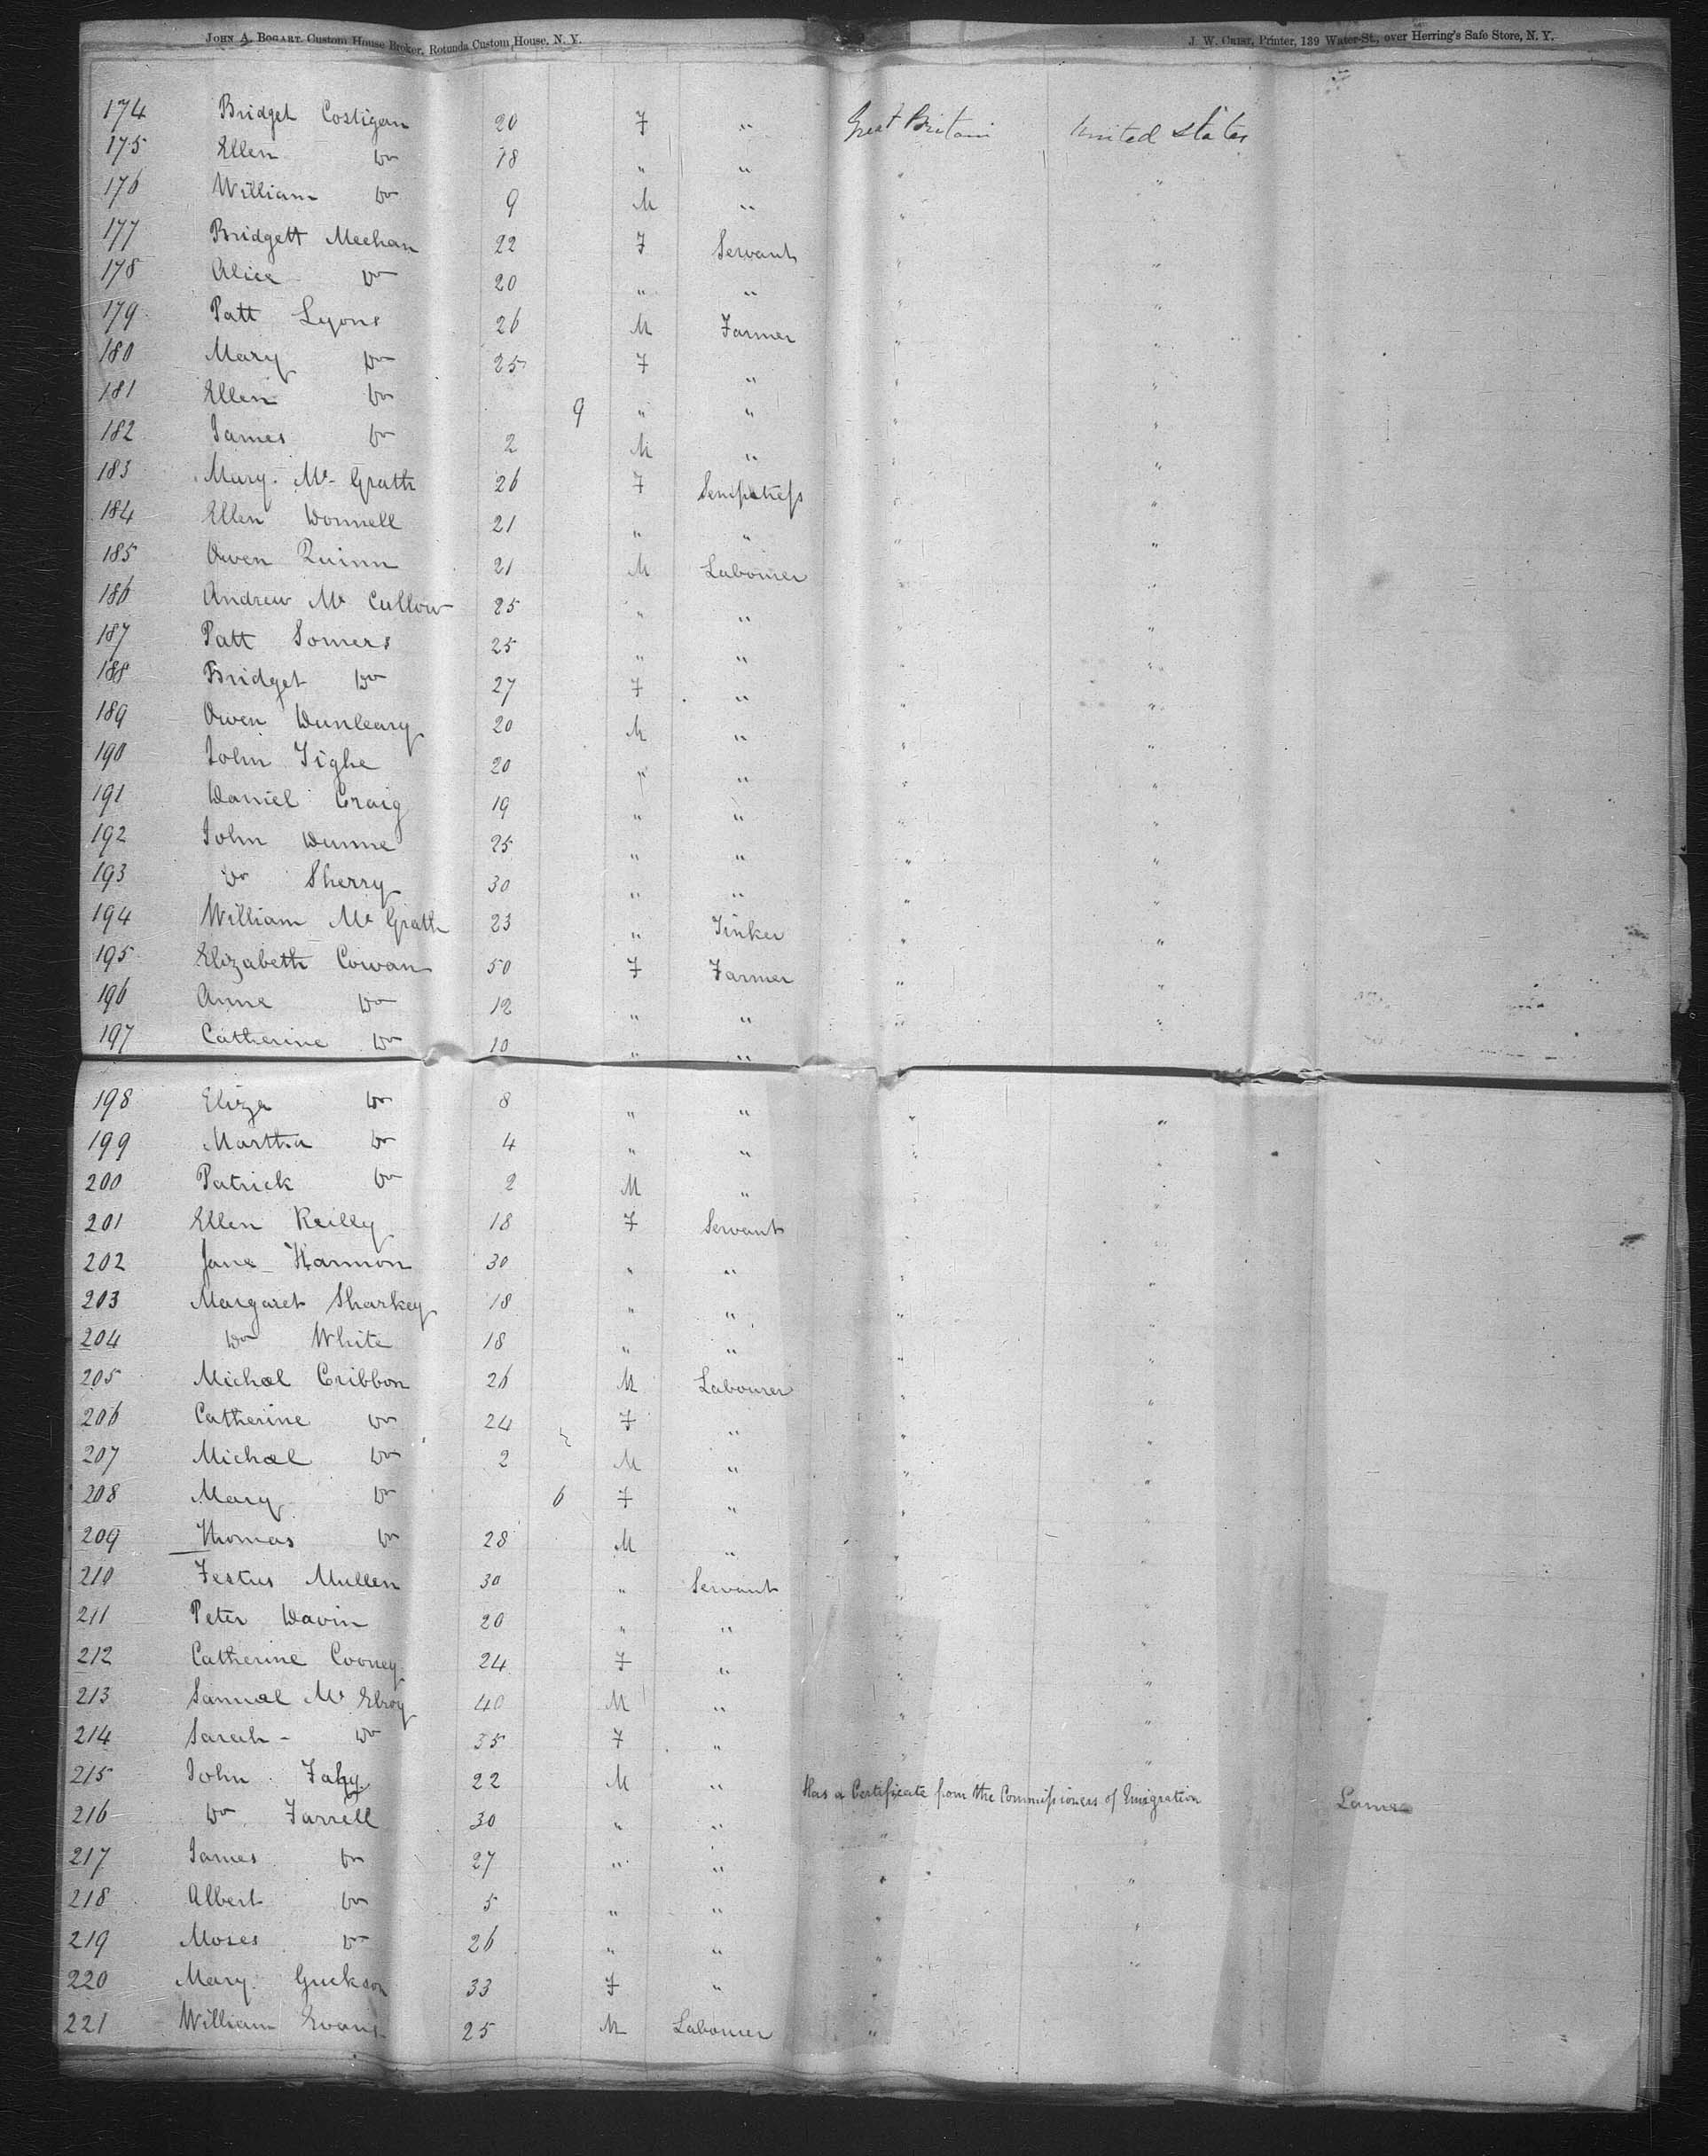 John A. Bogart, Custom House Broker, Rotunda Custom House, N. Y. J. W. Crist, Printer, 139 Water-St., over Herring's Safe Store, N. Y.
174 Bridget Costigan 20 F " Great Britain United States
175 Ellen Do 18 " " " "
176 William Do 9 M " " "
177 Bridgett Meehan 22 F Servant " "
178 Alice Do 20 " " " "
179 Patt Lyons 26 M Farmer " "
180 Mary Do 25 F " " "
181 Ellen Do 9 " " " "
182 James Do 2 M " " "
183 Mary Mc Grath 26 F Sempstress " "
184 Ellen Donnell 21 " " " "
185 Owen Quinn 21 M Labourer " "
186 Andrew Mc Cullow 25 " " " "
187 Patt Somers 25 " " " "
188 Bridget Do 27 F " " "
189 Owen Dunleary 20 M " " "
190 John Tighe 20 " " " "
191 Daniel Craig 19 " " " "
192 John Dunne 25 " " " "
193 Do Sherry 30 " " " "
194 William Mc Grath 23 " Tinker " "
195 Elizabeth Cowan 50 F Farmer " "
196 Anne Do 12 " " " "
197 Catherine Do 10 " "
198 Eliza Do 8 " " " "
199 Martha Do 4 " " " "
200 Patrick Do 2 M " " "
201 Ellen Reilly 18 F Servant " "
202 Jane Hannon 30 " " " "
203 Margaret Sharkey 18 " " " "
204 Do White 18 " " " "
205 Michael Cribbon 26 M Labourer " "
206 Catherine Do 24 F " " "
207 Michael Do 2 M " " "
208 Mary Do 6 F " " "
209 Thomas Do 28 M " " "
210 Festus Mullen 30 " Servant " "
211 Peter Davin 20 " " " "
212 Catherine Cooney 24 F " " "
213 Samuel Mc Elroy 40 M " " "
214 Sarah Do 35 F " " "
215 John Fahy 22 M " Has a Certificate from the Commissioners of Emigration Lame
216 Do Farrell 30 " " "
217 James Do 27 " " " "
218 Albert Do 5 " " " "
219 Moses Do 26 " " " "
220 Mary 33 F " "
221 William Evans 25 M Labourer "